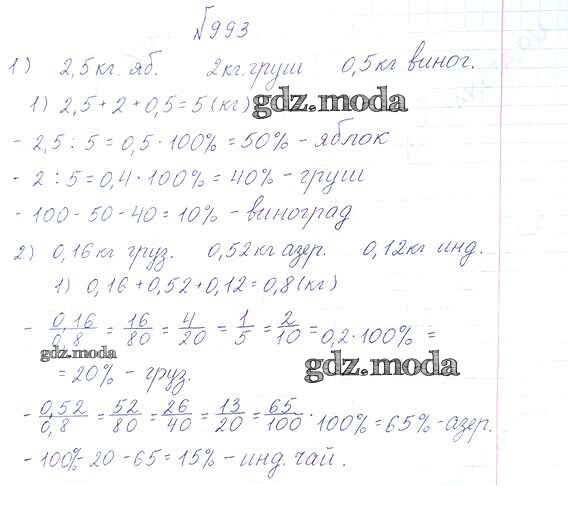 №993
1) 2,5 кг. яб. 2кг. груш 0,5 кг виног.
1) 2,5 + 2 + 0,5 = 5 (кг) gdz.moda
- 2,5 : 5 = 0,5 · 100% = 50% - яблок
- 2 : 5 = 0,4 · 100% = 40% - груш
- 100 - 50 - 40 = 10% - виноград
2) 0,16 кг груз. 0,52 кг азер. 0,12 кг инд.
1) 0,16 + 0,52 + 0,12 = 0,8 (кг)
- 0,16/0,8 = 16/80 = 4/20 = 1/5 = 2/10 = 0,2 · 100% =
gdz.moda gdz.moda
= 20% - груз.
- 0,52/0,8 = 52/80 = 26/40 = 13/20 = 65/100 · 100% = 65% - азер.
- 100% - 20 - 65 = 15% - инд. чай.